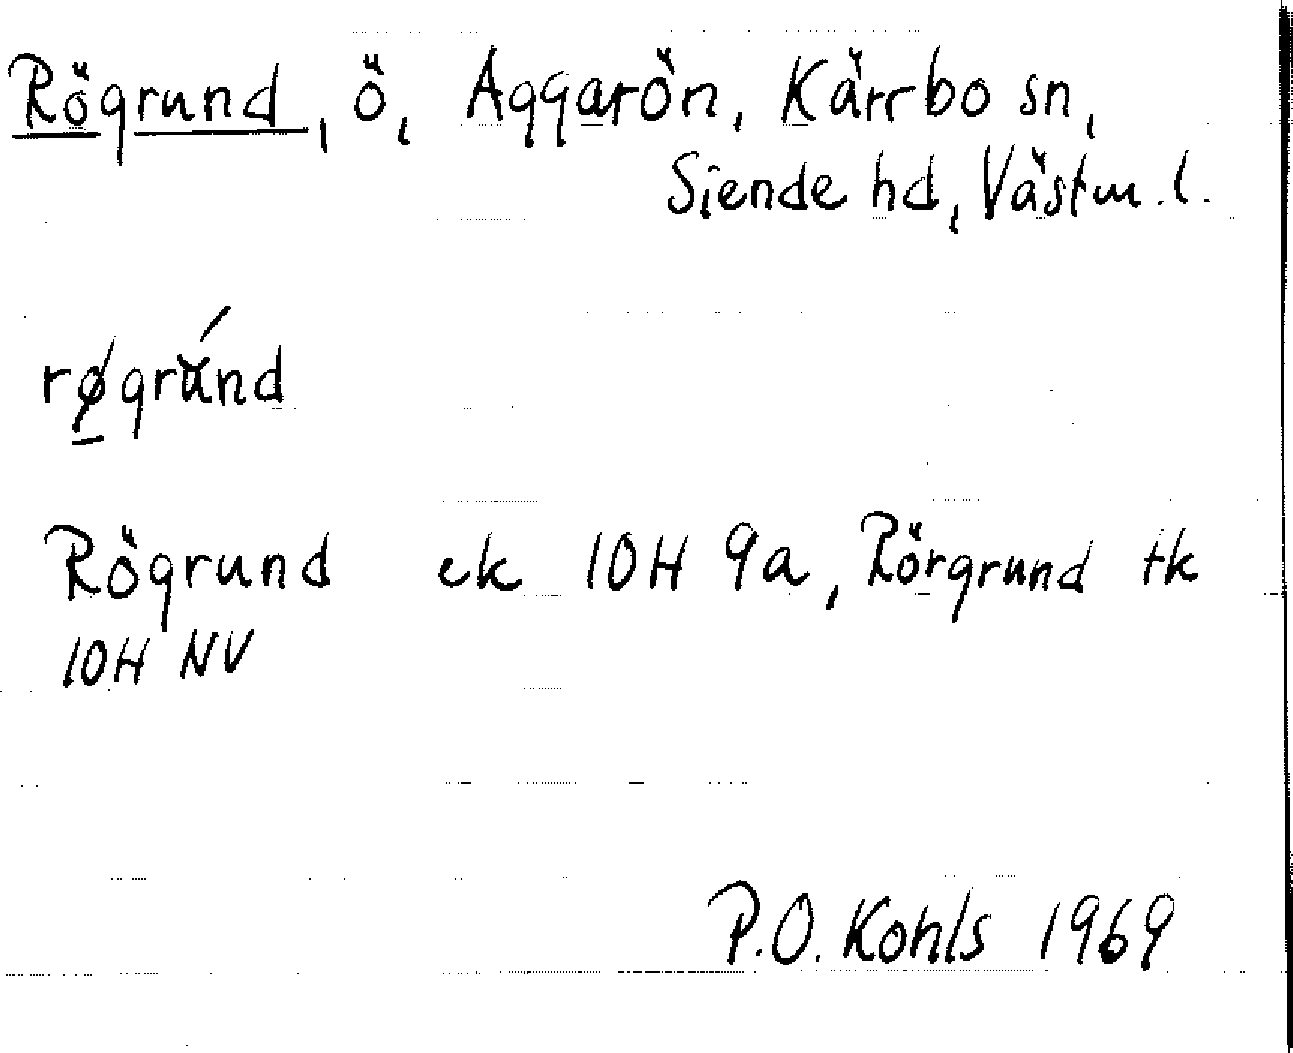 Rögrund, ö, Aggarön, Kärrbo sn,
Siende hd, Västm. l.
røgrund
Rögrund ek 10H 9a, Rörgrund tk
10H NV
P.O. Kohls 1969